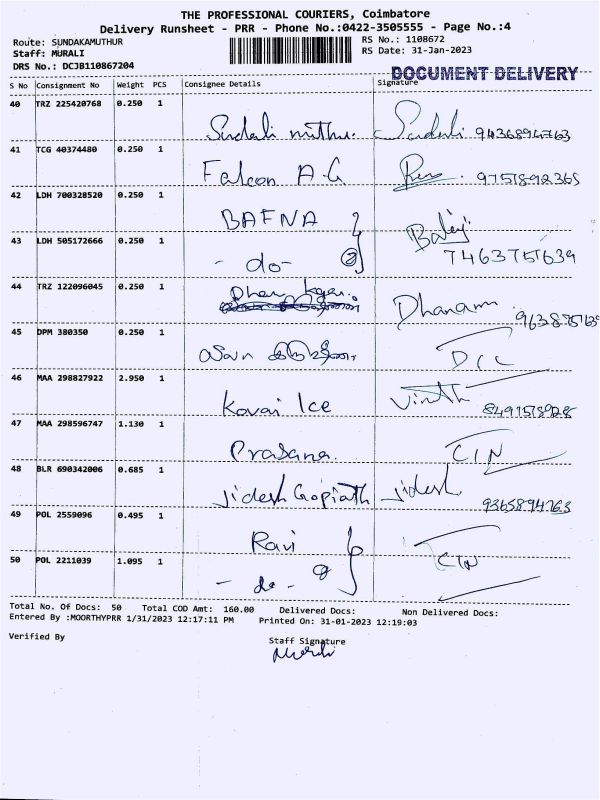 THE PROFESSIONAL COURIERS, Coimbatore
Delivery Runsheet - PRR - Phone No.:0422-3505555 - Page No.:4
Route: SUNDAKAMUTHUR
RS No.: 1108672
Staff: MURALI
RS Date: 31-Jan-2023
DRS No.: DCJB110867204
DOCUMENT DELIVERY
S No Consignment No Weight PCS Consignee Details Signature
40 TRZ 225420768 0.250 1
41 TCG 40374480 0.250 1 Falcon A.G
42 LDH 700328520 0.250 1 BAFNA Balaji
43 LDH 505172666 0.250 1 - do - ② 7463751639
44 TRZ 122096045 0.250 1 Dhanam
45 DPM 380350 0.250 1
46 MAA 298827922 2.950 1 Kovai Ice
47 MAA 298596747 1.130 1 Prasana. CIN
48 BLR 690342006 0.685 1 Jidesh Gopinath Jidesh
49 POL 2559096 0.495 1 Ravi
50 POL 2211039 1.095 1 - do - CIN
Total No. Of Docs: 50 Total COD Amt: 160.00 Delivered Docs: Non Delivered Docs:
Entered By :MOORTHYPRR 1/31/2023 12:17:11 PM Printed On: 31-01-2023 12:19:03
Verified By
Staff Signature
Murali